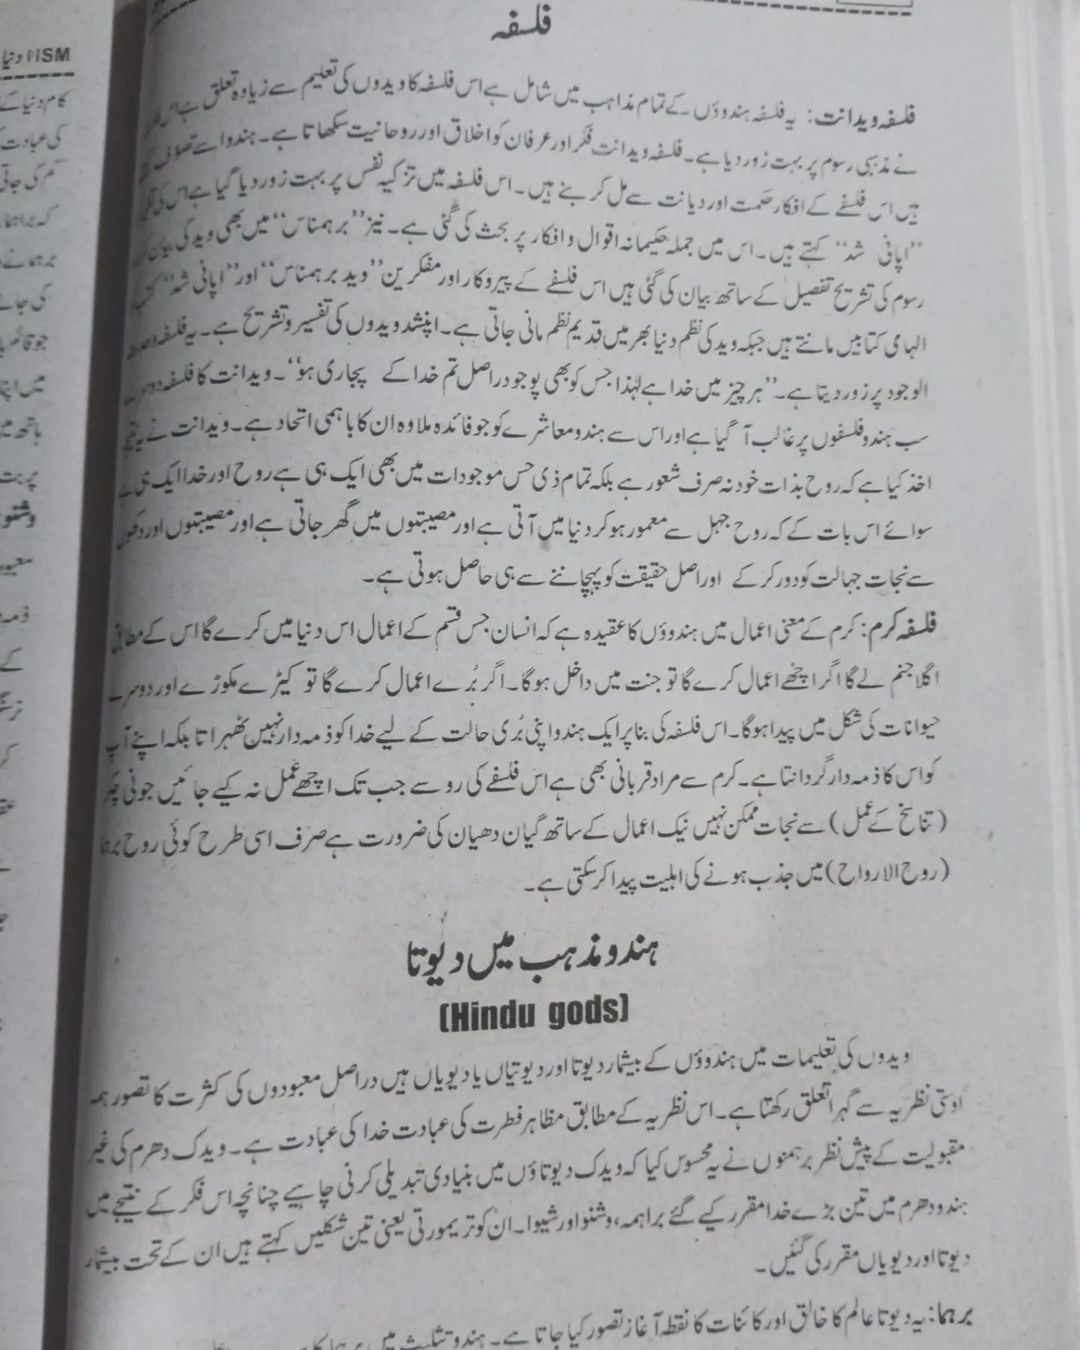 فلسفہ
فلسفہ ویدانت: یہ فلسفہ ہندوؤں کے تمام مذاہب میں شامل ہے اس فلسفہ کا ویدوں کی تعلیم سے زیادہ تعلق ہے اس
نے مذہبی رسوم پر بہت زور دیا ہے۔ فلسفہ ویدانت فکر اور عرفان کو اخلاق اور روحانیت سکھاتا ہے۔ ہندو اسے تصوف
ہیں اس فلسفے کے افکار حکمت اور دیانت سے مل کر بنے ہیں۔ اس فلسفہ میں تزکیہ نفس پر بہت زور دیا گیا ہے اس کی
”اپانی شد“ کہتے ہیں۔ اس میں جملہ حکیمانہ اقوال و افکار پر بحث کی گئی ہے۔ نیز ”برہمناس“ میں بھی وید کی بیان
رسوم کی تشریح تفصیل کے ساتھ بیان کی گئی ہیں اس فلسفے کے پیروکار اور مفکرین ”وید برہمناس“ اور ”اپانی شد“
الہامی کتابیں مانتے ہیں جبکہ وید کی نظم دنیا بھر میں قدیم نظم مانی جاتی ہے۔ اپنشد ویدوں کی تفسیر و تشریح ہے۔ یہ فلسفہ
الوجود پر زور دیتا ہے۔ ”ہر چیز میں خدا ہے لہٰذا جس کو بھی پوجو دراصل تم خدا کے پجاری ہو“۔ ویدانت کا فلسفہ دوسرے
سب ہندو فلسفوں پر غالب آ گیا ہے اور اس سے ہندو معاشرے کو جو فائدہ ملا وہ ان کا باہمی اتحاد ہے۔ ویدانت نے یہ نتیجہ
اخذ کیا ہے کہ روح بذات خود نہ صرف شعور ہے بلکہ تمام ذی حس موجودات میں بھی ایک ہی ہے روح اور خدا ایک ہی ہے
سوائے اس بات کے کہ روح جہل سے معمور ہو کر دنیا میں آتی ہے اور مصیبتوں میں گھر جاتی ہے اور مصیبتوں اور دکھوں
سے نجات جہالت کو دور کر کے اور اصل حقیقت کو پہچاننے سے ہی حاصل ہوتی ہے۔
فلسفہ کرم: کرم کے معنی اعمال میں ہندوؤں کا عقیدہ ہے کہ انسان جس قسم کے اعمال اس دنیا میں کرے گا اس کے مطابق
اگلا جنم لے گا اگر اچھے اعمال کرے گا تو جنت میں داخل ہوگا۔ اگر بُرے اعمال کرے گا تو کیڑے مکوڑے اور دوسرے
حیوانات کی شکل میں پیدا ہوگا۔ اس فلسفہ کی بنا پر ایک ہندو اپنی بُری حالت کے لیے خدا کو ذمہ دار نہیں ٹھہراتا بلکہ اپنے آپ
کو اس کا ذمہ دار گردانتا ہے۔ کرم سے مراد قربانی بھی ہے اس فلسفے کی رو سے جب تک اچھے عمل نہ کیے جائیں جونی چکر
(تناسخ کے عمل) سے نجات ممکن نہیں نیک اعمال کے ساتھ گیان دھیان کی ضرورت ہے صرف اسی طرح کوئی روح برہما
(روح الارواح) میں جذب ہونے کی اہلیت پیدا کر سکتی ہے۔
ہندو مذہب میں دیوتا
(Hindu gods)
ویدوں کی تعلیمات میں ہندوؤں کے بیشمار دیوتا اور دیوتیاں یا دیویاں ہیں دراصل معبودوں کی کثرت کا تصور ہمہ
اوستی نظریہ سے گہرا تعلق رکھتا ہے۔ اس نظریہ کے مطابق مظاہر فطرت کی عبادت خدا کی عبادت ہے۔ ویدک دھرم کی غیر
مقبولیت کے پیش نظر برہمنوں نے یہ محسوس کیا کہ ویدک دیوتاؤں میں بنیادی تبدیلی کرنی چاہیے چنانچہ اس فکر کے نتیجے میں
ہندو دھرم میں تین بڑے خدا مقرر کیے گئے براہمہ، وشنو اور شیوا۔ ان کو تریمورتی یعنی تین شکلیں کہتے ہیں ان کے تحت بیشمار
دیوتا اور دیویاں مقرر کی گئیں۔
برہما: یہ دیوتا عالم کا خالق اور کائنات کا نقطہ آغاز تصور کیا جاتا ہے۔ ہندو تثلیث میں برہما کا